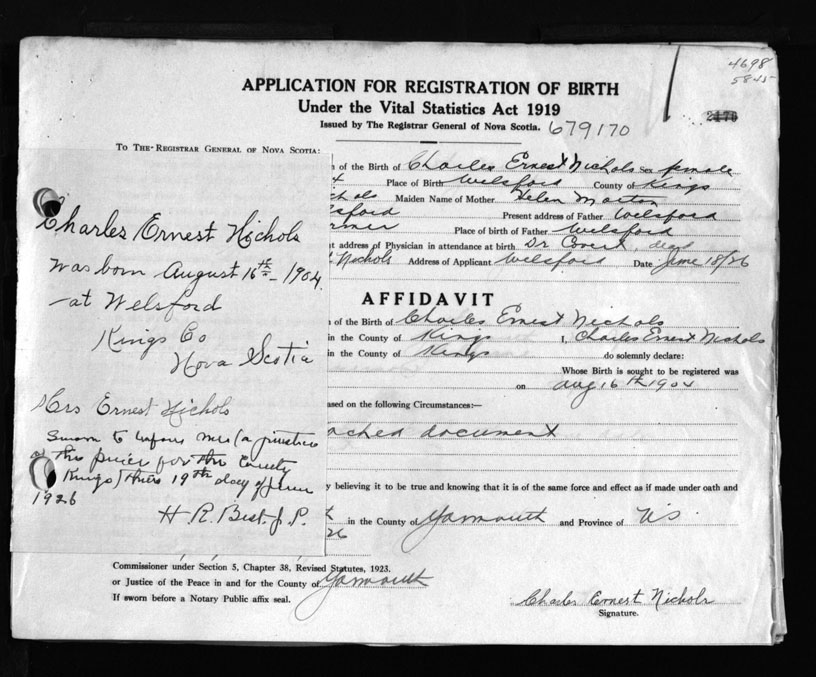 4698
5845
APPLICATION FOR REGISTRATION OF BIRTH
Under the Vital Statistics Act 1919
Issued by The Registrar General of Nova Scotia. 679170
2476
TO THE REGISTRAR GENERAL OF NOVA SCOTIA:
of the Birth of Charles Ernest Nichols Sex female
4 Place of Birth Welsford County of Kings
ichols Maiden Name of Mother Helen Morton
lsford Present address of Father Welsford
rmer Place of birth of Father Welsford
t address of Physician in attendance at birth Dr Covert, decd
Nichols Address of Applicant Welsford Date June 18/26
AFFIDAVIT
of the Birth of Charles Ernest Nichols
in the County of Kings I, Charles Ernest Nichols
in the County of Kings do solemnly declare:
Whose Birth is sought to be registered was
on Aug 16th 1904
ased on the following Circumstances:—
ached document
y believing it to be true and knowing that it is of the same force and effect as if made under oath and
in the County of Yarmouth and Province of NS
26
Commissioner under Section 5, Chapter 38, Revised Statutes, 1923.
or Justice of the Peace in and for the County of Yarmouth
If sworn before a Notary Public affix seal.
Charles Ernest Nichols
Signature.
Charles Ernest Nichols
was born August 16th - 1904.
at Welsford
Kings Co
Nova Scotia
Mrs Ernest Nichols
Sworn to before me (a justice
of the peace for the County
Kings) this 19th day of June
1926
H. R. Best. J. P.